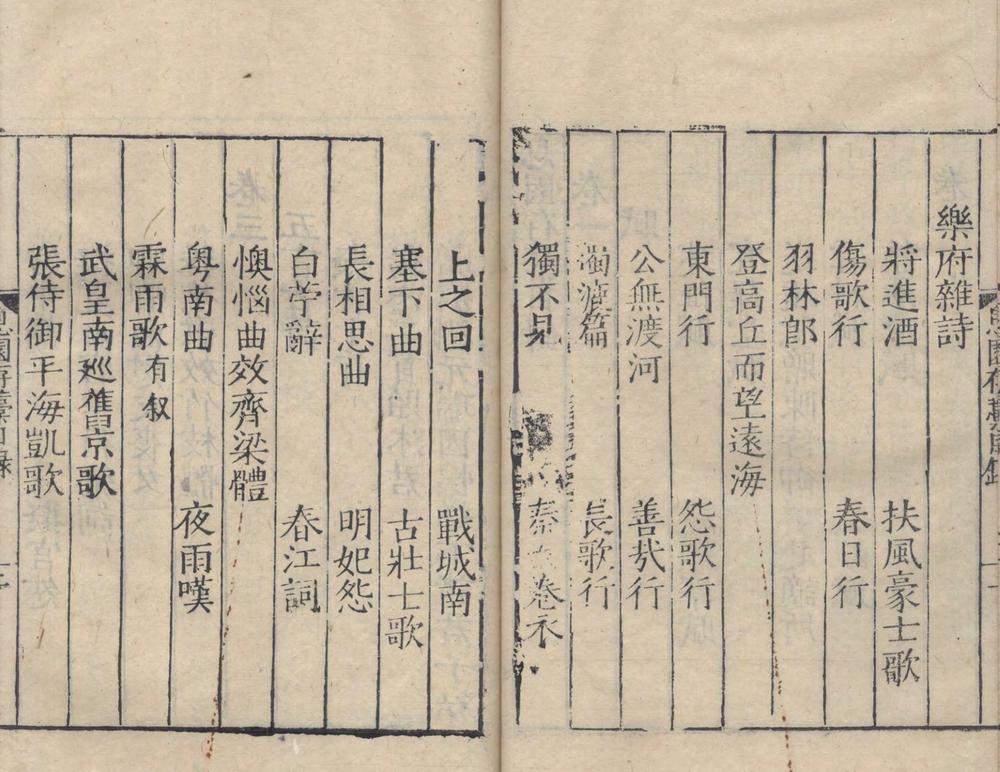 樂府雜詩
將進酒 扶風豪士歌
傷歌行 春日行
羽林郎
登高丘而望遠海
東門行 怨歌行
公無渡河 善哉行
濁漉篇 長歌行
獨不見 秦 卷衣
上之回 戰城南
塞下曲 古壯士歌
長相思曲 明妃怨
白苧辭 春江詞
懊惱曲效齊梁體
粵南曲 夜雨嘆
霖雨歌有叙
武皇南廵舊京歌
張侍御平海凱歌